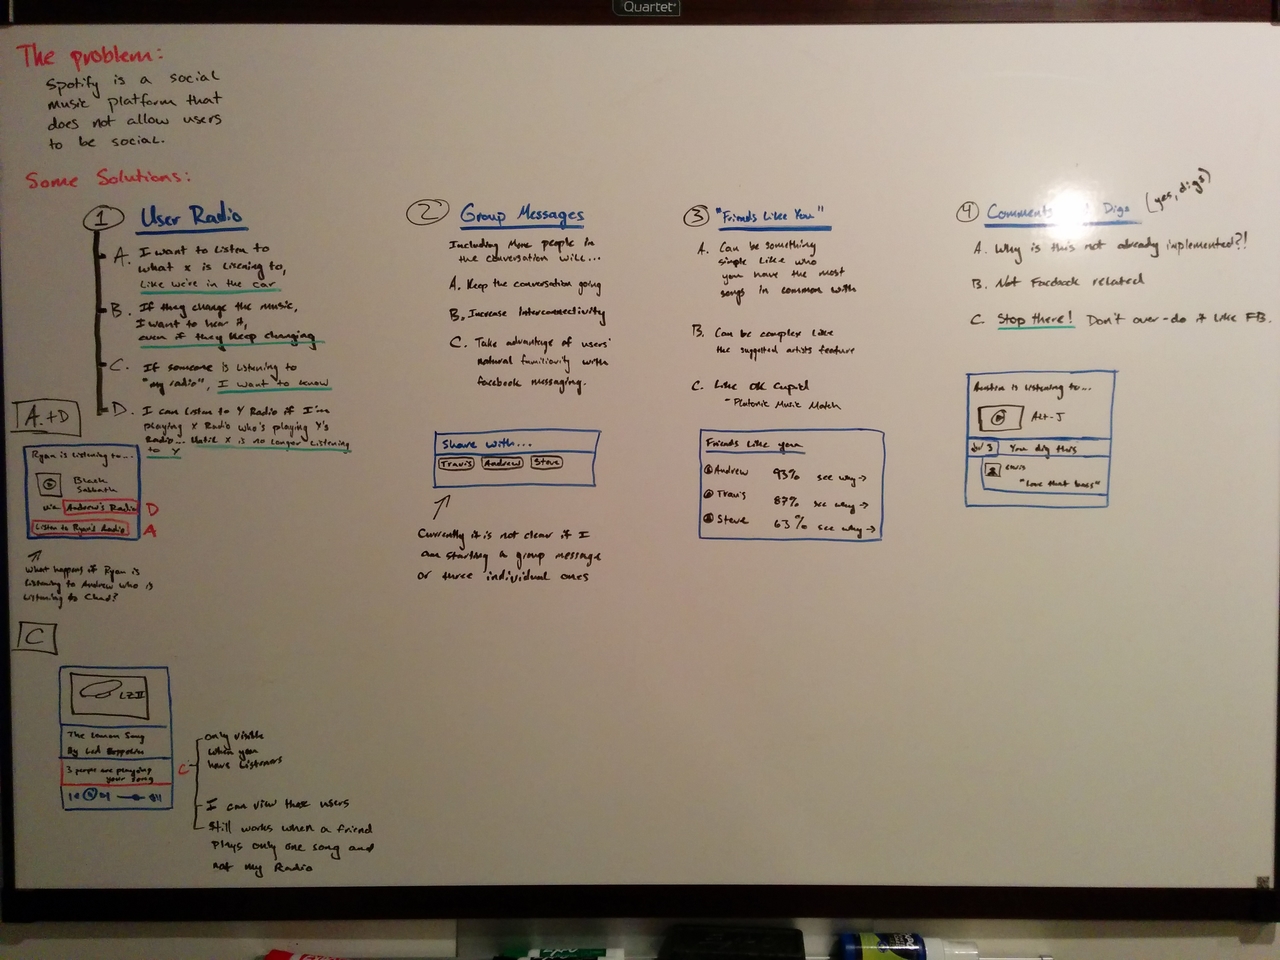 Quartet
The problem:
Spotify is a social
music platform that
does not allow users
to be social.
Some Solutions:
1 User Radio
A. I want to listen to
what x is listening to,
like we're in the car
B. If they change the music,
I want to hear it,
even if they keep changing
C. If someone is listening to
"my radio", I want to know
D. I can listen to Y Radio if I'm
playing X Radio who's playing Y's
Radio... until X is no longer listening
to Y
A.+D
Ryan is listening to...
Black
Sabbath
via Andrew's Radio D
Listen to Ryan's Radio A
What happens if Ryan is
listening to Andrew who is
listening to Chad?
C
LZII
The Lemon Song
By Led Zeppelin
3 people are playing
your song
C
only visible
when you
have listeners
I can view these users
Still works when a friend
plays only one song and
not my Radio
2 Group Messages
Including more people in
the conversation will...
A. Keep the conversation going
B. Increase Interconnectivity
C. Take advantage of users'
natural familiarity with
facebook messaging.
Share with...
Travis Andrew Steve
Currently it is not clear if I
am starting a group message
or three individual ones
3 "Friends Like You"
A. Can be something
simple like who
you have the most
songs in common with
B. Can be complex like
the suggested artists feature
C. Like OK Cupid
- Platonic Music Match
Friends like you
Andrew 93% see why →
Travis 87% see why →
Steve 63% see why →
4 Comments Digs (yes, digs)
A. Why is this not already implemented?!
B. Not Facebook related
C. Stop there! Don't over-do it like FB.
Austin is listening to...
Alt-J
3 You dig this
"Love that bass"